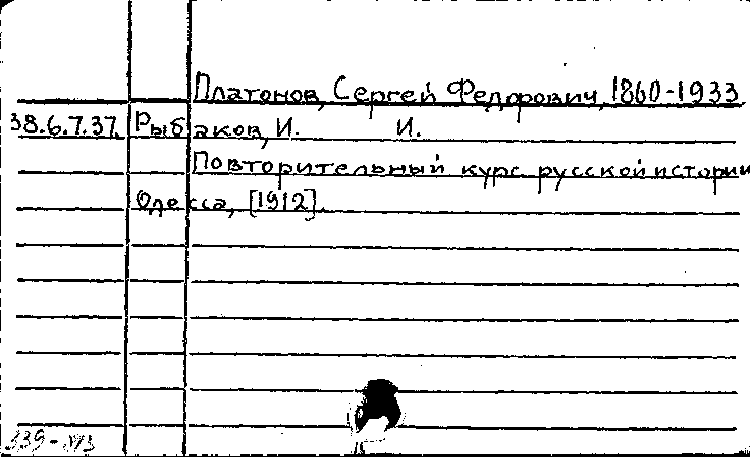 Платонов, Сергей Федорович, 1860-1933
38.6.7.37. Рыбаков, И. И.
Повторительный курс русской истории
Одесса, [1912].